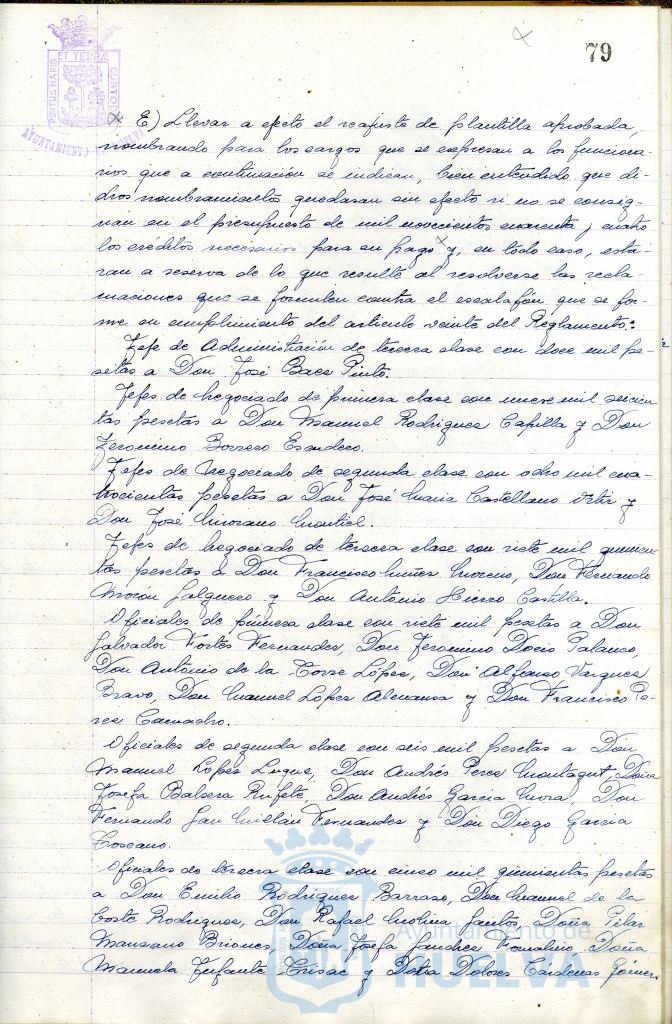 79
PORTUS MARIS ET TERRÆ CUSTODIA
AYUNTAMIENTO
E) Llevar a efecto el reajuste de plantilla aprobada,
nombrando para los cargos que se expresan a los funciona-
rios que a continuación se indican, bien entendido que di-
chos nombramientos quedaran sin efecto si no se consig-
nan en el presupuesto de mil novecientos cuarenta y cuatro
los creditos necesarios para su pago y, en todo caso, esta-
ran a reserva de lo que resulte al resolverse las recla-
maciones que se formulen contra el escalafón que se for-
me en cumplimiento del articulo veinte del Reglamento:
Jefe de Administración de tercera clase con doce mil pe-
setas a Don José Baca Pinto.
Jefes de Negociado de primera clase con nueve mil seiscien-
tas pesetas a Don Manuel Rodrigues Capilla y Don
Jeronimo Borrero
Jefes de Negociado de segunda clase con ocho mil cua-
trocientas pesetas a Don José Maria Castellano y
Don José Moreno Montiel.
Jefes de Negociado de tercera clase con siete mil quinien-
tas pesetas a Don Francisco Don Fernando
Moron y Don Antonio Hierro Castilla.
Oficiales de primera clase con siete mil pesetas a Don
Salvador Fortes Fernandez, Don Jeronimo Palanco,
Don Antonio de la Torre López, Don Alfonso Vazques
Bravo, Don Manuel López Almansa y Don Francisco Pe-
rez Camacho.
Oficiales de segunda clase con seis mil pesetas a Don
Manuel López Luque, Don Andrés Perez Montagut, Doña
Josefa Rufete, Don Andrés Garcia Mora, Don
Fernando San Millán Fernandez y Don Diego Garcia
Toscano.
Oficiales de tercera clase con cinco mil quinientas pesetas
a Don Emilio Rodrigues Barraso, Don Manuel de la
Corte Rodrigues, Don Rafael Molina Santos, Doña Pilar
Manzano Briones, Doña Josefa Doña
Manuela Infante y Doña Dolores Cardenas Gómez
Ayuntamiento de
HUELVA